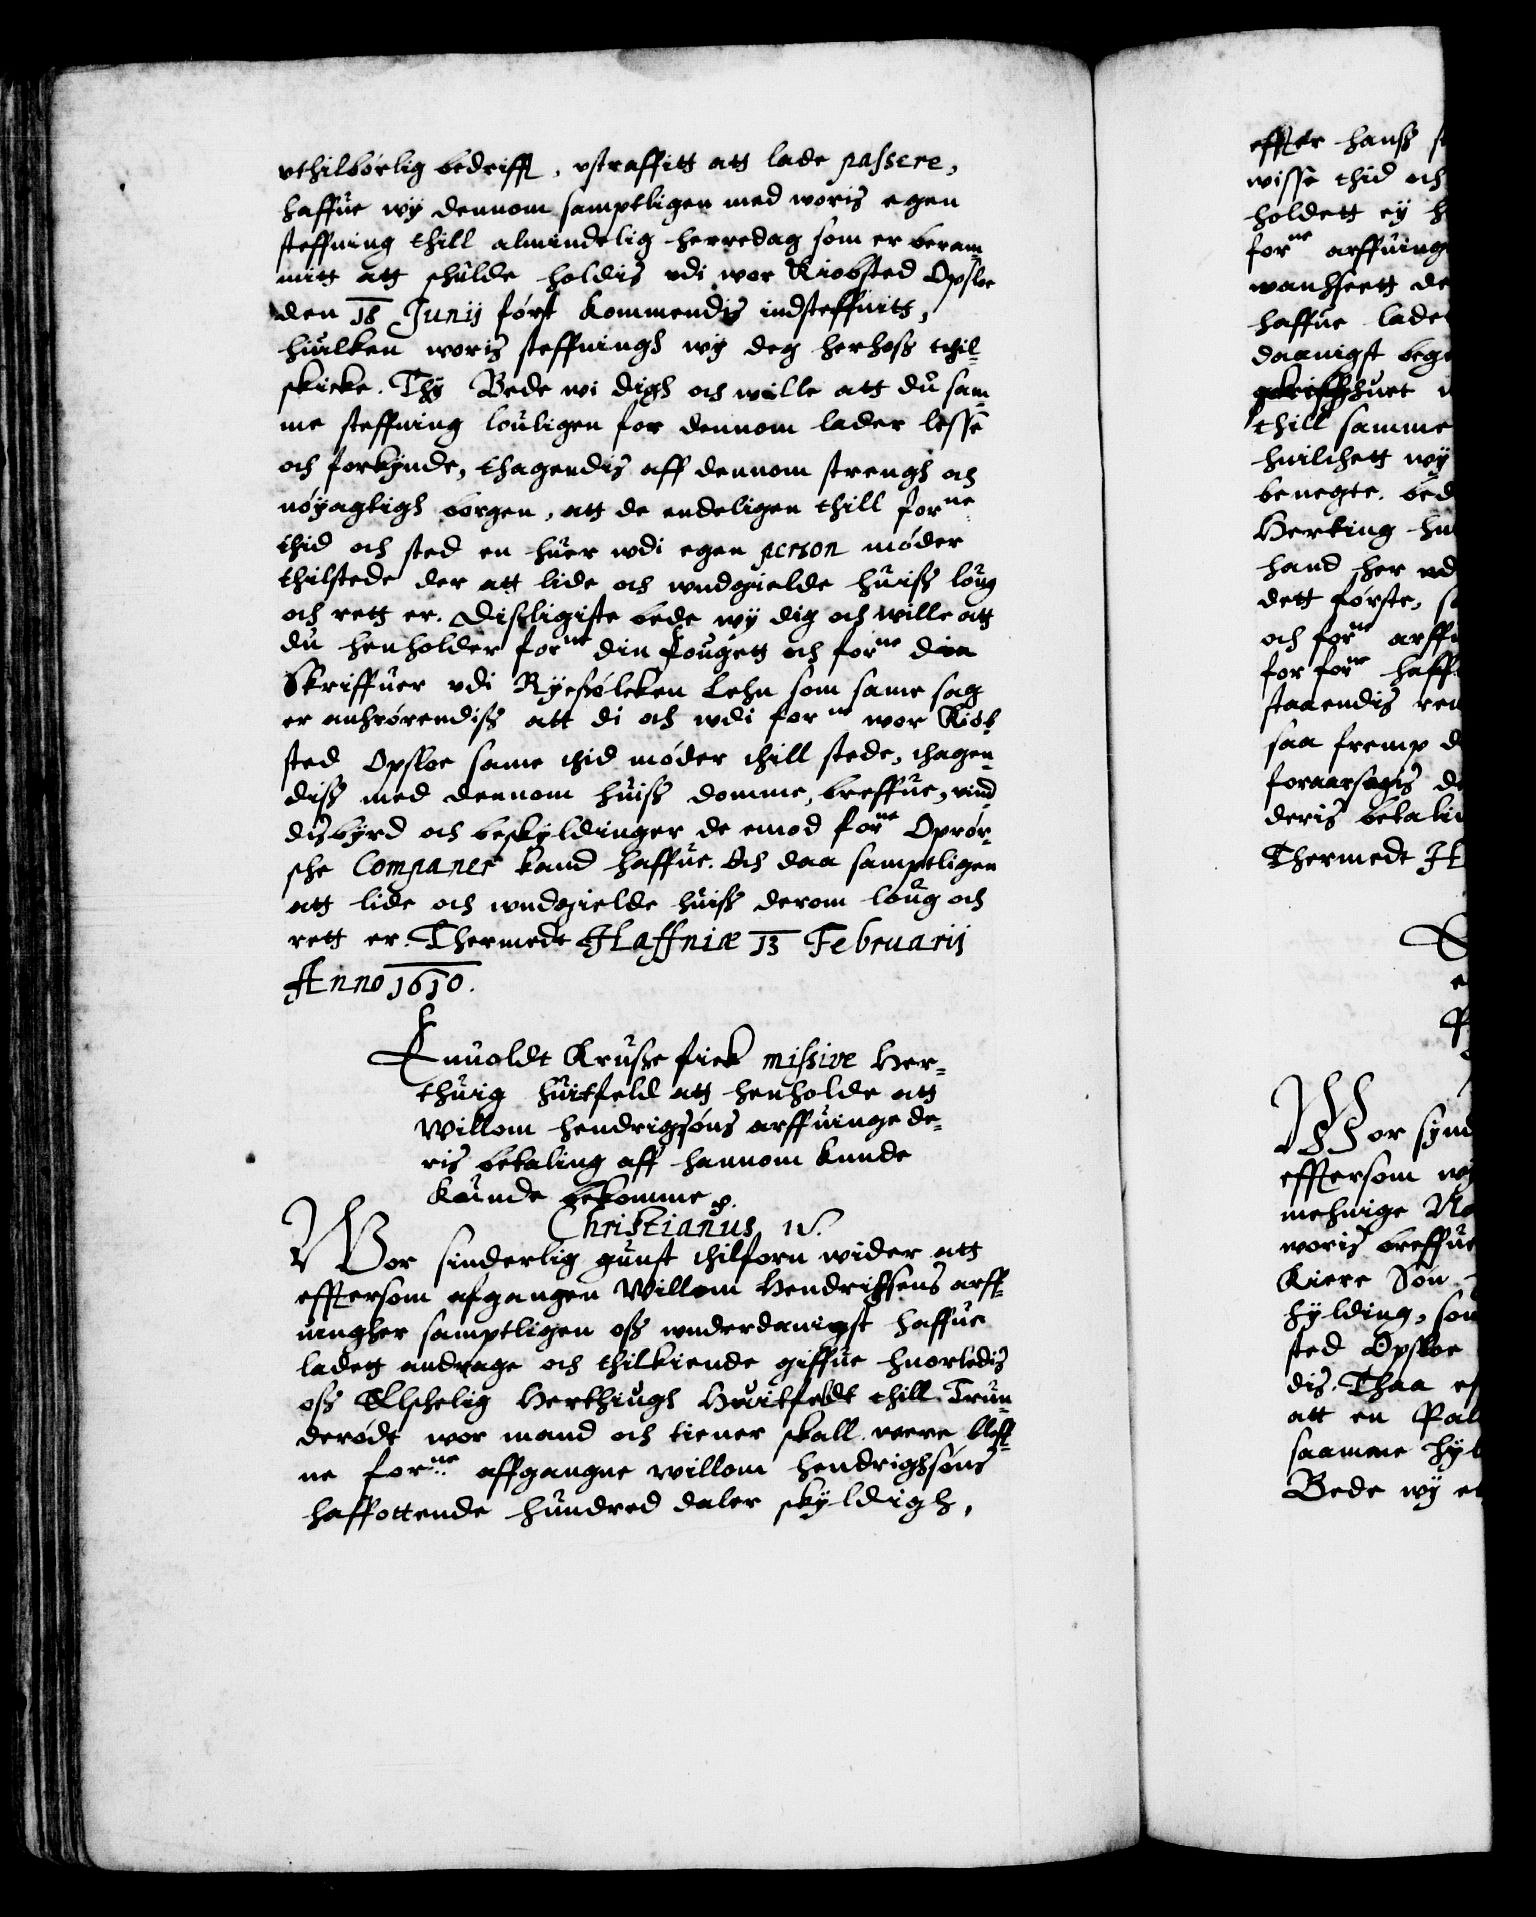 vthilbørlig bedrifft, vstraffitt att lade passere,
haffue wy dennom samptligen med woris egen
steffning thill almindelig herredag som er beram¬
mitt att schulde holdis vdi wor Kiobsted Opsloe
den 18 Junij først kommendis indsteffnitt,
huilken woris steffningh wy deg herhoss thil¬
skicke. Thy Bede wi digh och wille att du sam¬
me steffning louligen for dennom lader lesse
och forkynde, thagendis aff dennom strengh och
nøyagtigh borgen, att de endeligen thill forne
thid och sted en huer wdi egen person møder
thilstede der att lide och wndgielde huiss loug
och rett er. Disligiste bede wy dig och wille att
du henholder forne din fougett och forne din
Skriffuer vdi Ryeføleken Lehn som same sag
er anhrørendiss att di och wdi forne wor Kiøb
sted Opsloe same thid møder thill stede, thagen¬
diss med dennom huiss domme, breffue, vind
disbyrd och beskyldinger de emod forne Oprør¬
sche Companer kand haffue. Och daa samptligen
att lide och wndgielde huiss derom loug och
rett er. Thermedt Haffniæ 13 Februarij
Anno 1610.
Enuoldt Krusse fick missive Her¬
thuig huitfeld att henholde att
Willom hendrigsøns arffuinge de¬
ris betaling aff hannom kunde
kunde bekomme.
Christianus 4.
Wor sinderlig gunst thilforn wider att
efftersom afgangen Willom Hendrichsens arff¬
uingher samptligen oss wnderdanigst haffue
ladett andrage och thilkiende giffue huorledis
oss Elschelig Herthiugh Huitfeldt thill Trun¬
derødt wor mand och tiener skall were bleff¬
ne forne affgangne willom hendrighsøns
haffottende hundred daler skyldigh,
effter hanss
wisse thid och
holdett ey
forne arffuing
wanhseett de
haffue lade
daanigst beg
huet
thill samme
huilchett wy
benegte. bed
Herting
hand her vd
dett første,
och forne arff
for forne haff
staaendis
saa fremp d
foraarsagis de
deris betalin
Thermedt H
Wor synd
efftersom wy
menige No
woris breffue
Kiere Søn
hylding, som
sted Opsloe
dis. Thaa
att en Pal
saamme hyl
Bede wy